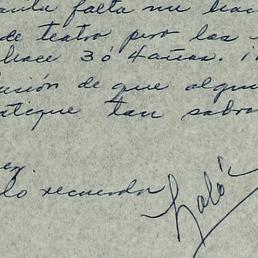 falta me
de teatro pero las
hace 3 ó 4 años.
usión de que algu
atique tan sabro
en
lo recuerda
Lalo